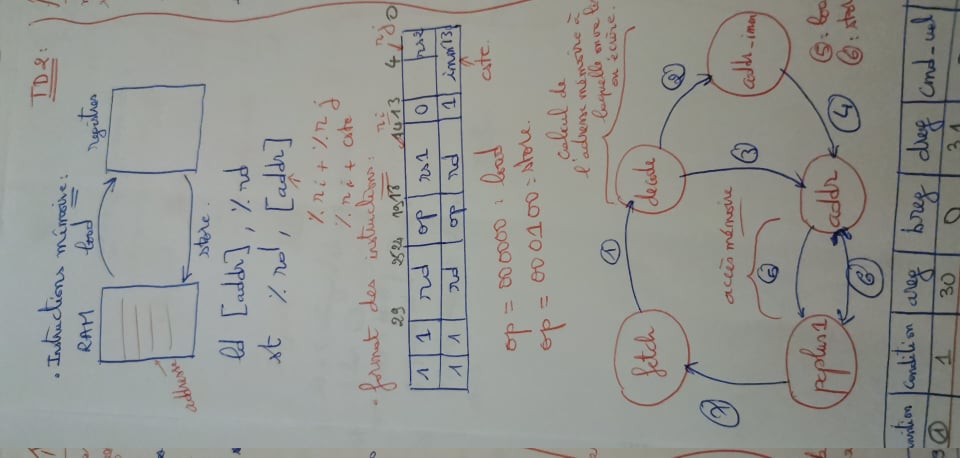 TD2:
• Instructions mémoire:
RAM load registres
addresse
store.
ld [addr], %rd
st %rd, [addr]
%ri + %rj
%ri + cste
• format des instructions:
ri rj
29 25 24 19 18 14 13 4 0
1 1 rd op rs1 0 rs2
1 1 rd op rd 1 imm13
cste.
op = 000000: load
op = 000100: store.
calcul de
l'adresse mémoire à
laquelle on va
en écrire.
fetch 1 decode
2
7 accès mémoire 3 addr_imm
5
pcplus1 addr
6 4
5: loa
6: sto
condition areg breg dreg cond_val
1 1 30 0 31